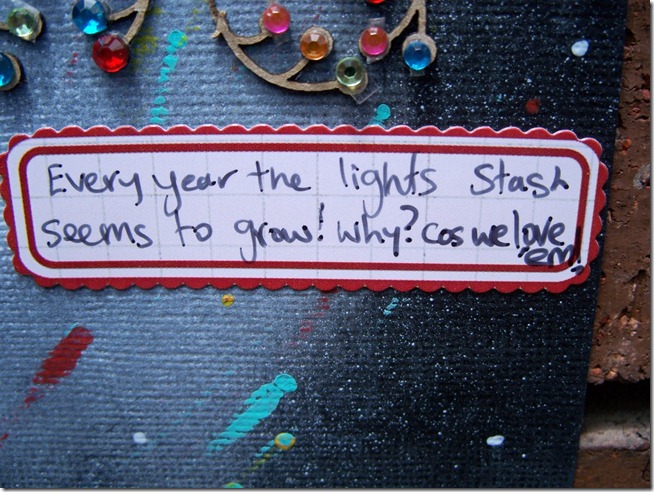 Every year the lights Stash
seems to grow! why? cos we love
em!